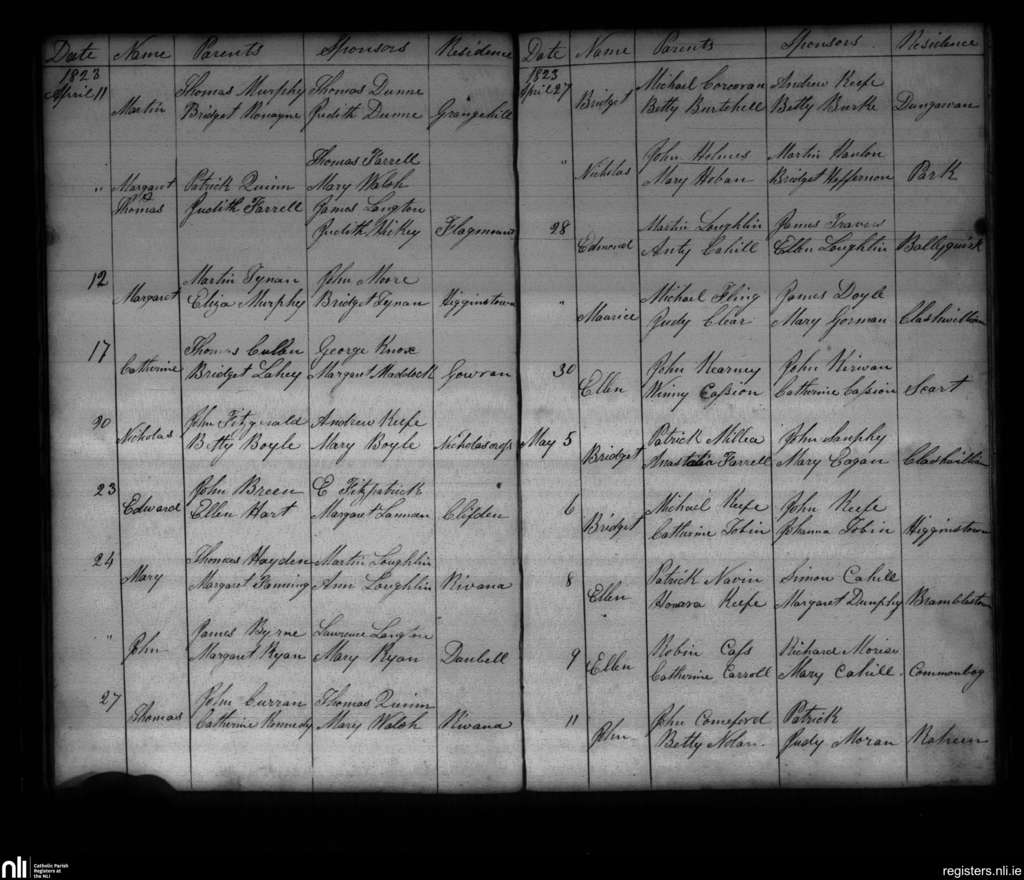 Date Name Parents Sponsors Residence
1823
April 11 Thomas Murphy Thomas Dunne
Martin Bridget Ronayne Judith Dunne Grangehill
Thomas Farrell
" Margaret Patrick Quinn Mary Walsh
Thomas Judith Farrell James Langton
Judith Hickey Flagmount
12 Martin Tynan John Moore
Margaret Eliza Murphy Bridget Tynan Higginstown
17 Thomas Cullen George Knox
Catherine Bridget Lahey Margaret Maddock Gowran
20 John Fitzgerald Andrew Keefe
Nicholas Betty Boyle Mary Boyle
23 John Breen E Fitzpatrick
Edward Ellen Hart Margaret Lannan Clifden
24 Thomas Hayden Martin Loughlin
Mary Margaret Fanning Ann Loughlin Rivana
" James Byrne Lawrence Langton
John Margaret Ryan Mary Ryan Danbell
27 John Curran Thomas Quinn
Thomas Catherine Kennedy Mary Walsh Rivana
Date Name Parents Sponsors Residence
1823
April 27 Michael Corcoran Andrew Keefe
Bridget Betty Burtchell Betty Burke Dungarvan
" John Holmes Martin Hanlon
Nicholas Mary Hoban Bridget Heffernon Park
28 Martin Loughlin James Travers
Edmond Anty Cahill Ellen Loughlin Ballyquirk
" Michael Fling James Doyle
Maurice Judy Clear Mary Gorman Clashwillian
30 John Kearney John Kirwan
Ellen Winny Cassion Catherine Cassion Scart
May 5 Patrick Millea John
Bridget Anastatia Farrell Mary Eagan Clashwillian
6 Michael Keefe John Keefe
Bridget Catherine Tobin Johanna Tobin Higginstown
8 Patrick Navin Simon Cahill
Ellen Honora Keefe Margaret Dunphy Bramblestown
9 Robin Cass Richard
Ellen Catherine Carroll Mary Cahill Commonbog
11 John Comeford Patrick
John Betty Nolan Judy Moran Raheen
nli Catholic Parish
Registers at
the NLI
registers.nli.ie